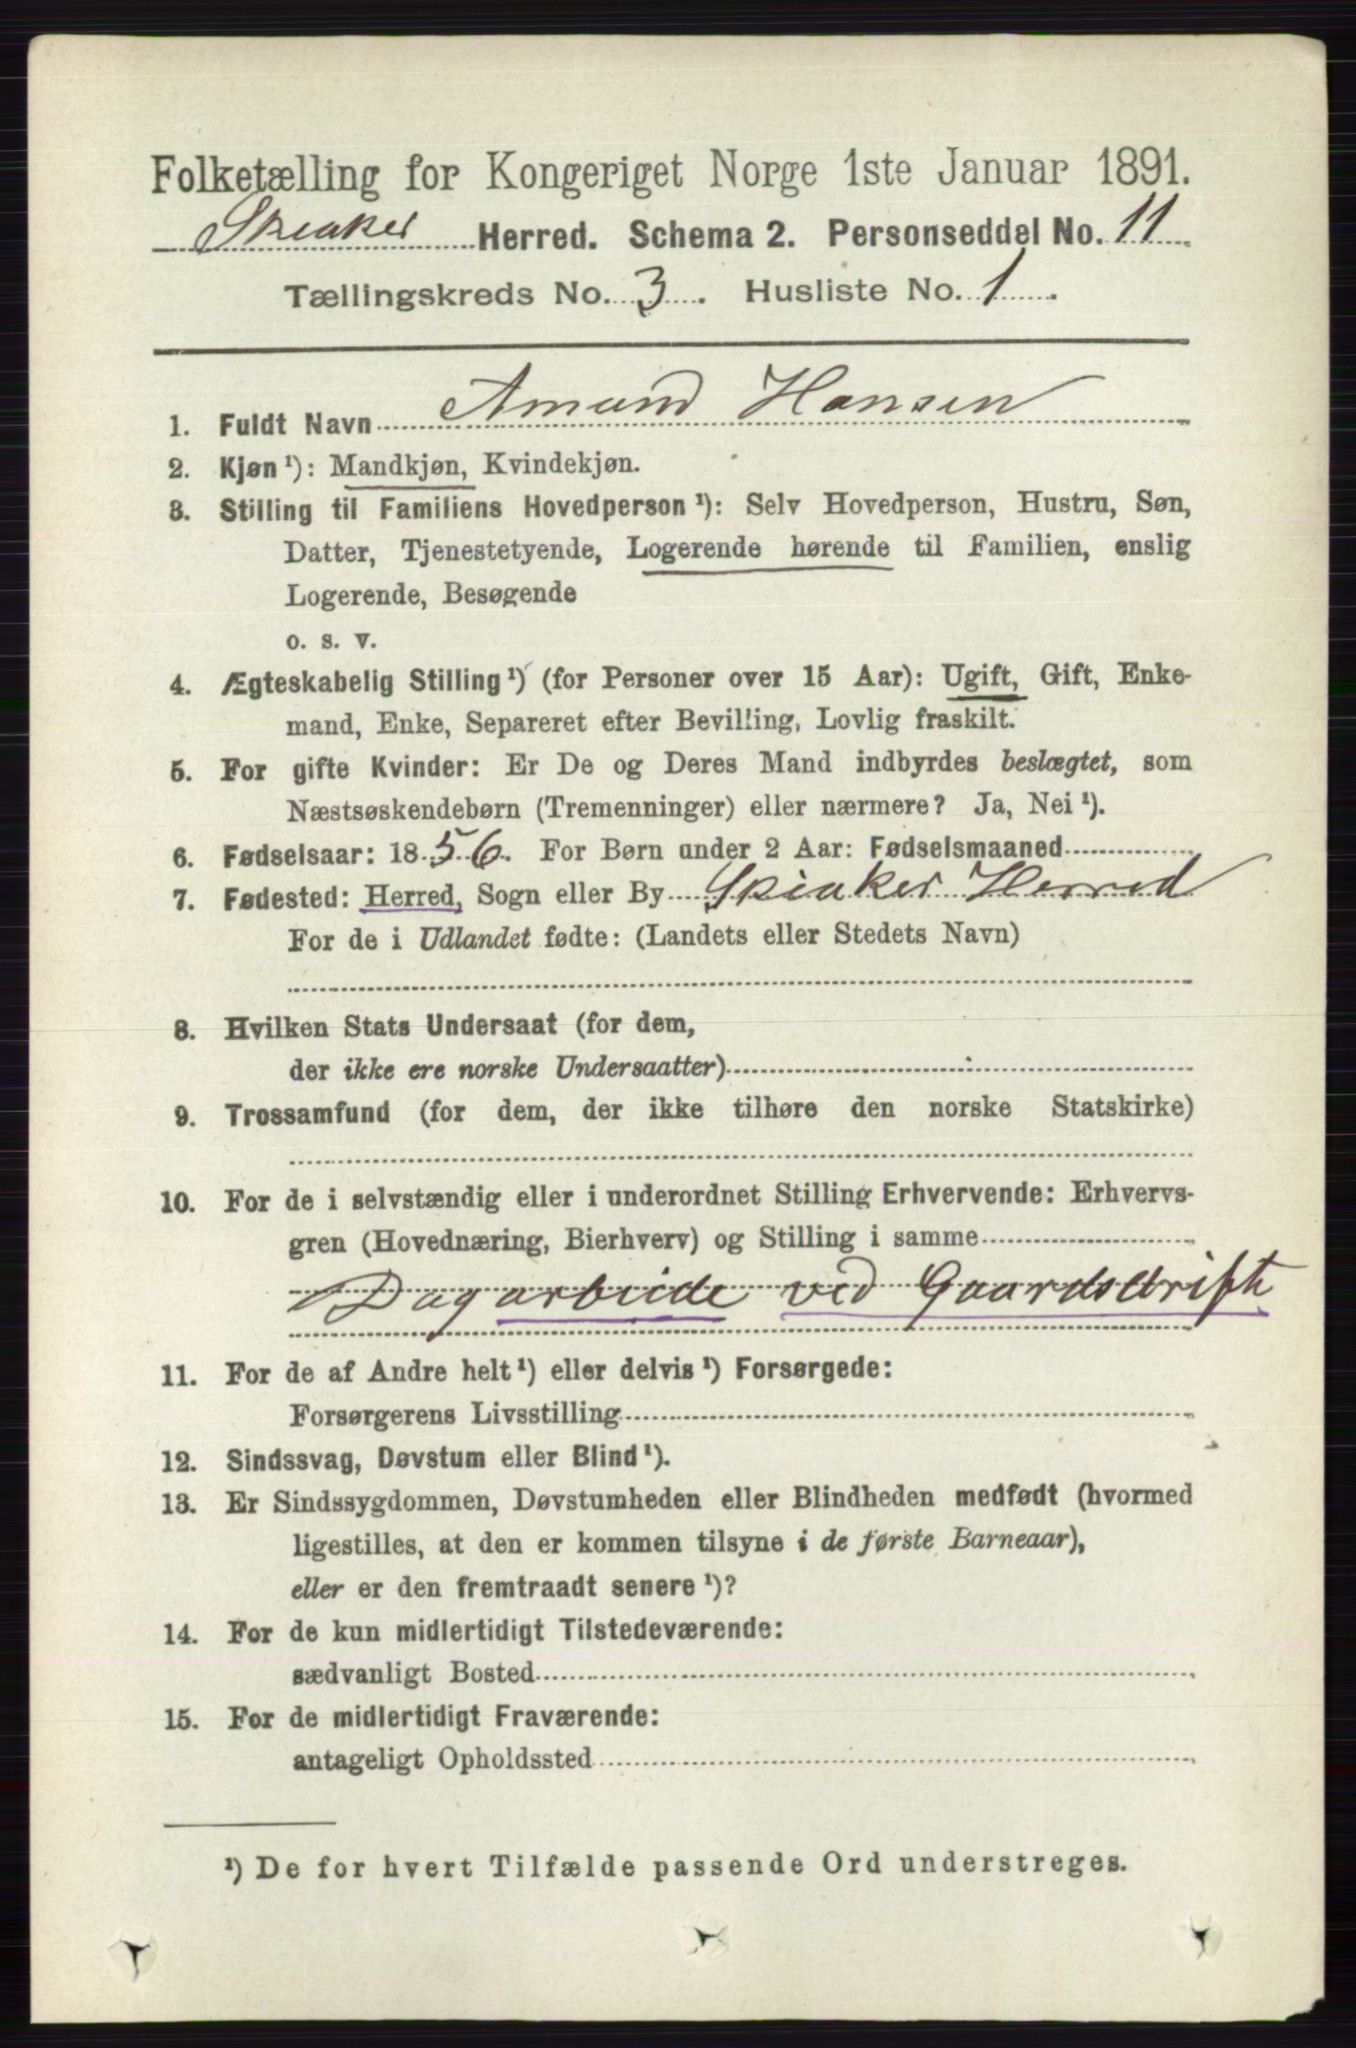 Folketælling for Kongeriget Norge 1ste Januar 1891.
Skiaker Herred. Schema 2. Personseddel No. 11
Tællingskreds No. 3. Husliste No. 1.
1. Fuldt Navn Amund Hansen
2. Kjøn ¹): Mandkjøn, Kvindekjøn.
3. Stilling til Familiens Hovedperson ¹): Selv Hovedperson, Hustru, Søn,
Datter, Tjenestetyende, Logerende hørende til Familien, enslig
Logerende, Besøgende
o. s. v.
4. Ægteskabelig Stilling ¹) (for Personer over 15 Aar): Ugift, Gift, Enke-
mand, Enke, Separeret efter Bevilling, Lovlig fraskilt.
5. For gifte Kvinder: Er De og Deres Mand indbyrdes beslægtet, som
Næstsøskendebørn (Tremenninger) eller nærmere? Ja, Nei ¹).
6. Fødselsaar: 1856. For Børn under 2 Aar: Fødselsmaaned
7. Fødested: Herred, Sogn eller By Skiaker Herred
For de i Udlandet fødte: (Landets eller Stedets Navn)
8. Hvilken Stats Undersaat (for dem,
der ikke ere norske Undersaatter)
9. Trossamfund (for dem, der ikke tilhøre den norske Statskirke)
10. For de i selvstændig eller i underordnet Stilling Erhvervende: Erhvervs-
gren (Hovednæring, Bierhverv) og Stilling i samme
Dagarbeide ved Gaardsdrift
11. For de af Andre helt ¹) eller delvis ¹) Forsørgede:
Forsørgerens Livsstilling
12. Sindssvag, Døvstum eller Blind ¹).
13. Er Sindssygdommen, Døvstumheden eller Blindheden medfødt (hvormed
ligestilles, at den er kommen tilsyne i de første Barneaar),
eller er den fremtraadt senere ¹)?
14. For de kun midlertidigt Tilstedeværende:
sædvanligt Bosted
15. For de midlertidigt Fraværende:
antageligt Opholdssted
¹) De for hvert Tilfælde passende Ord understreges.